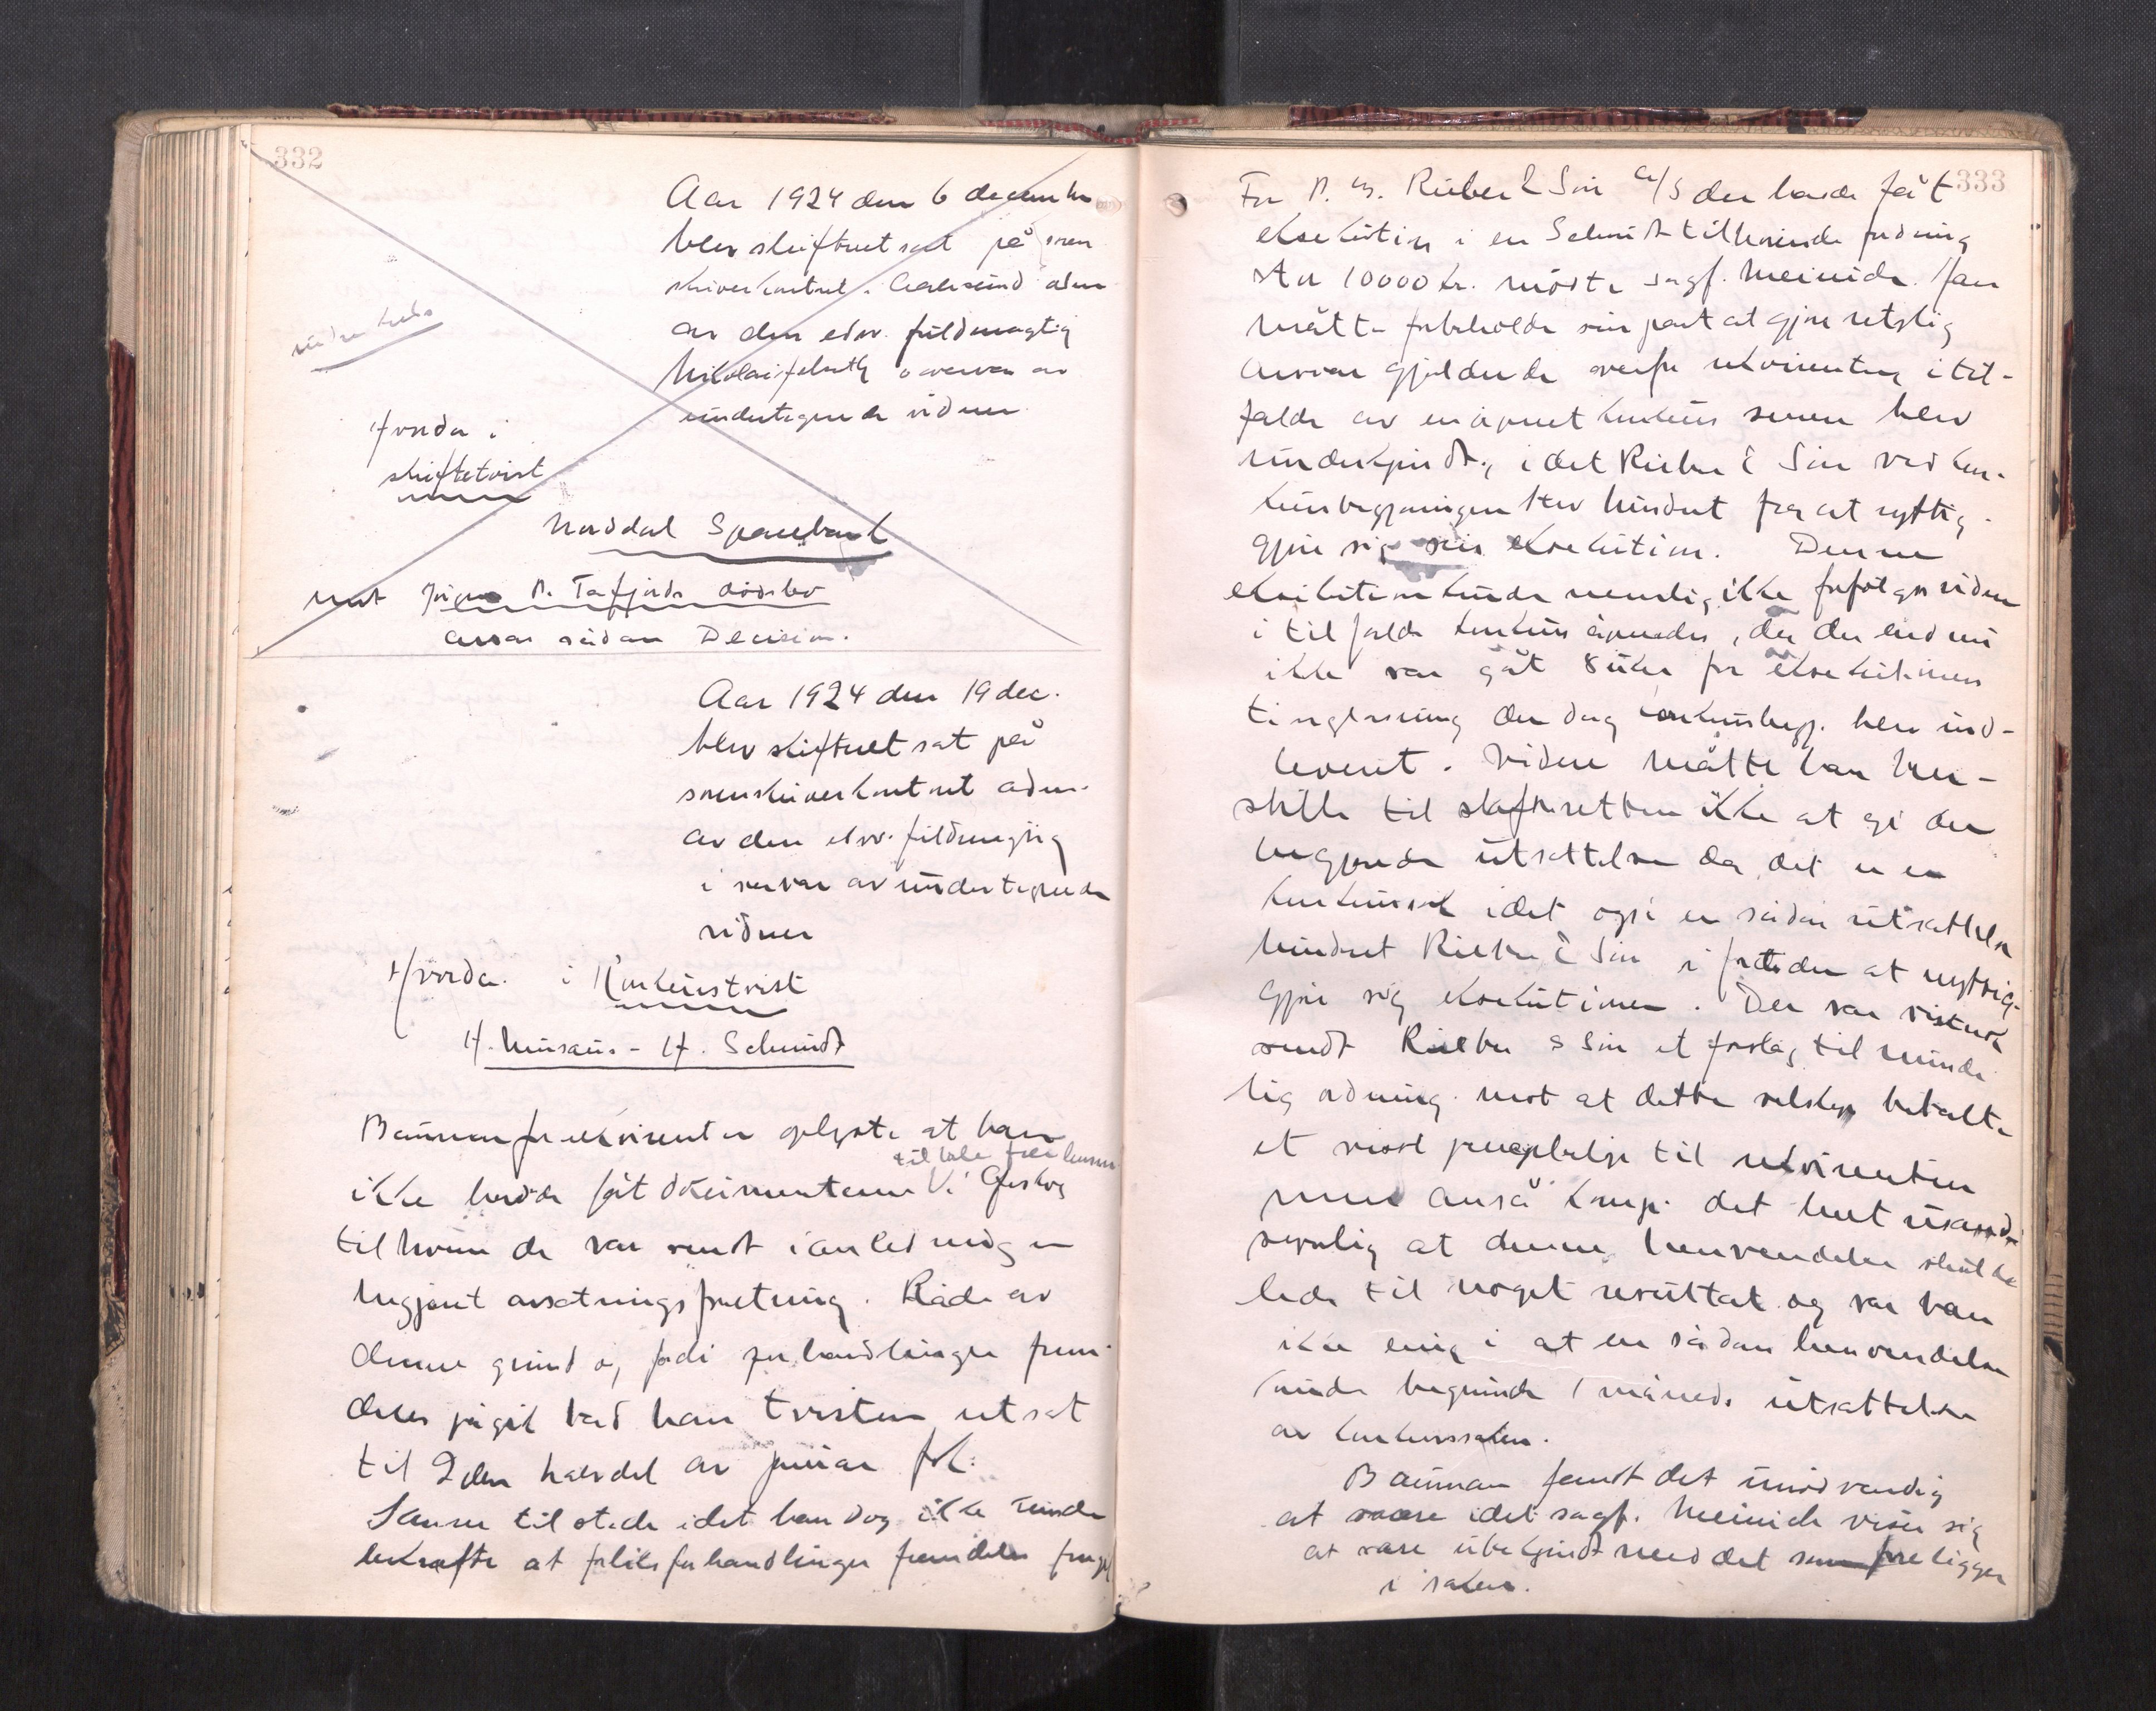 332
Aar 1924 den 6 december
blev skifteret sat på soren
skriverkontoret i Aalesund adm
av den edsv. fuldmægtig
Nikolai i overvær av
undertegnede vidner
Hvorda i
skiftetvist
Norddal Sparebank
mot P. Tafjords dødsbo
avsas sådan Decision.
Aar 1924 den 19 dec.
blev skifteret sat på
sorenskriverkontoret adm.
av den edsv. fuldmægtig
i nærvær av undertegnede
vidner
Hvorda i Konkurstvist
H. Mursaus - H. Schmidt
Bauman for rekvirenten oplyste at han
til tale fra
ikke hadde fåt dokumenterne
til hvem de var sendt i anledning en
begjært avsætningsforretning. Både av
denne grund og fordi forhandlinger frem-
deles pågik bad han tvisten utsat
til 2den halvdel av januar
tilstede idet han dog ikke kunde
bekræfte at forliksforhandlinger fremdeles
333
For Rieber & Søn A/S der havde fåt
eksekution i en Schmidt tilhørende fordring
stor 10000 kr. møtte sagf. Meinich. Han
måtte forbeholde sin part at gjøre retslig
ansvar gjældende overfor rekvirenten i til-
fælde av en åpnet konkurs senere blev
underkjendt, idet Rieber & Søn ved kon-
kursbegjæringen blev hindret fra at nyttig-
gjøre sig sin eksekution. Denne
eksekution kunde nemlig ikke forfølges videre
i tilfælde konkurs åpnedes, da der endnu
ikke var gåt 8 uker fra eksekutionens
tinglæsning den dag konkursbegj. blev ind-
leveret. Videre måtte han hen-
stille til skifteretten ikke at gi den
begjærede utsættelse da det er en
konkurssak idet også en sådan utsættelse
hindret Rieber & Søn i fremtiden at nyttig-
gjøre sig eksekutionen. Der var vistnok
sendt Rieber & Søn et forslag til minde-
lig ordning mot at dette selskap betalte
et visst pengebeløp til rekvirenten
men anså komp. det helt usand-
synlig at denne henvendelse skulde
lede til noget resultat og var han
ikke enig i at en sådan henvendelse
kunde begrunde 1 måneds utsættelse
av konkurssaken.
Bauman fandt det unødvendig
at svare idet sagf. Meinich viser sig
at være ubekjendt med det som foreligger
i saken.